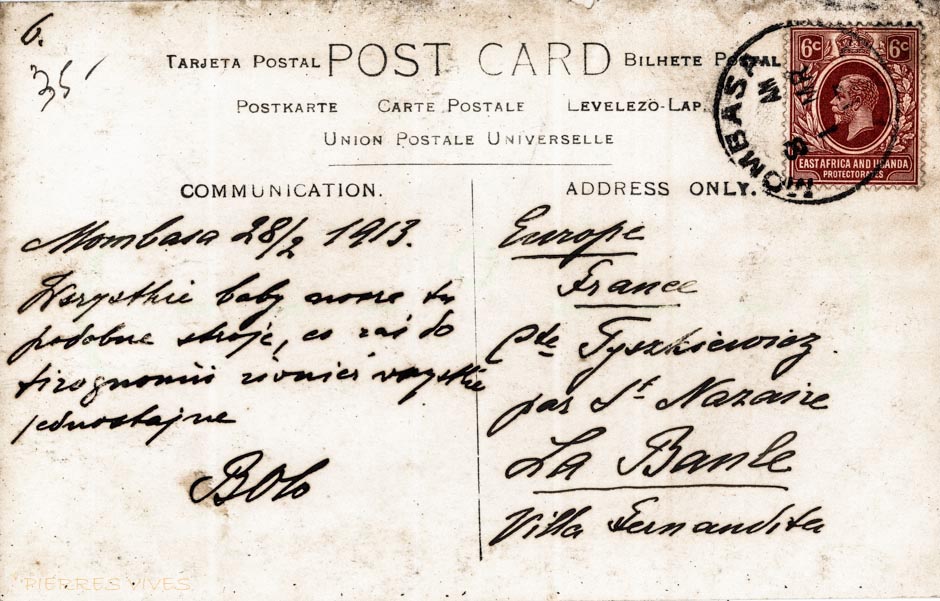 6.
35
TARJETA POSTAL POST CARD BILHETE POSTAL
POSTKARTE CARTE POSTALE LEVELEZÖ-LAP.
UNION POSTALE UNIVERSELLE
6c 6c
EAST AFRICA AND UGANDA
PROTECTORATES
MOMBASA
MR
COMMUNICATION.
Mombasa 28/2 1913.
Wszystkie baby nosze tu
podobne stroje, co zaś do
fizognomii również wszystkie
jednostajne
Bolo
ADDRESS ONLY.
Europe
France
Cte Tyszkiewicz.
par St Nazaire
La Baule
Villa Fernandita
PIERRES VIVES